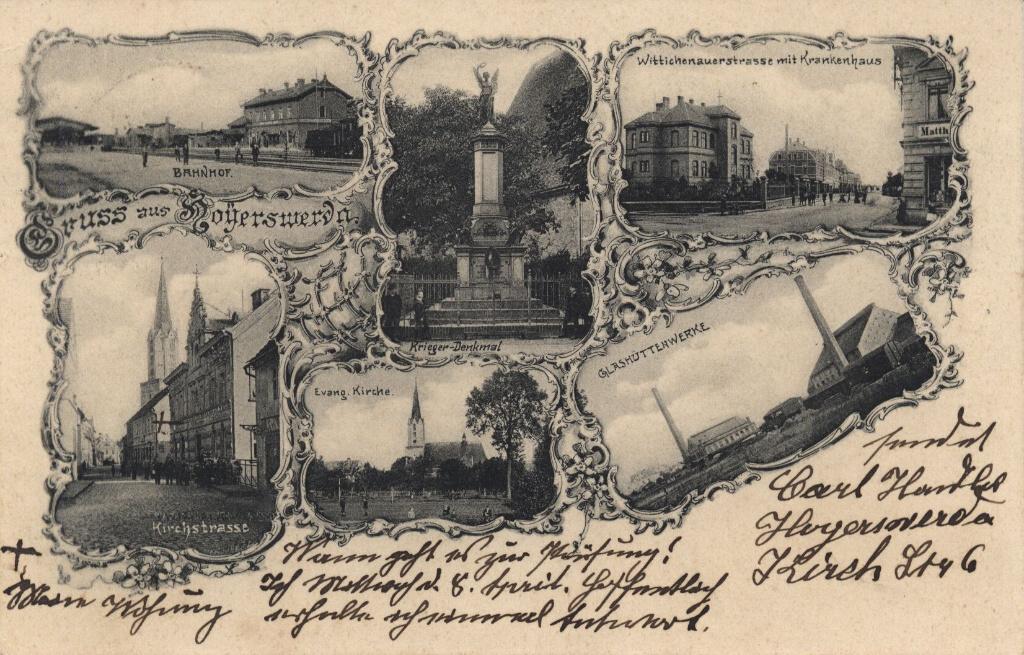 BAHNHOF.
Gruss aus Hoyerswerda.
Krieger-Denkmal
Wittichenauerstrasse mit Krankenhaus
Matth
Kirchstrasse
Evang. Kirche.
GLASHÜTTENWERKE
sendet
Carl
Hoyerswerda
Kirch Str 6
Wann geht es zur Prüfung!
Ich Mittwoch d. 8. April. Hoffentlich
erhalte ich einmal Antwort.
+
Meine Wohnung